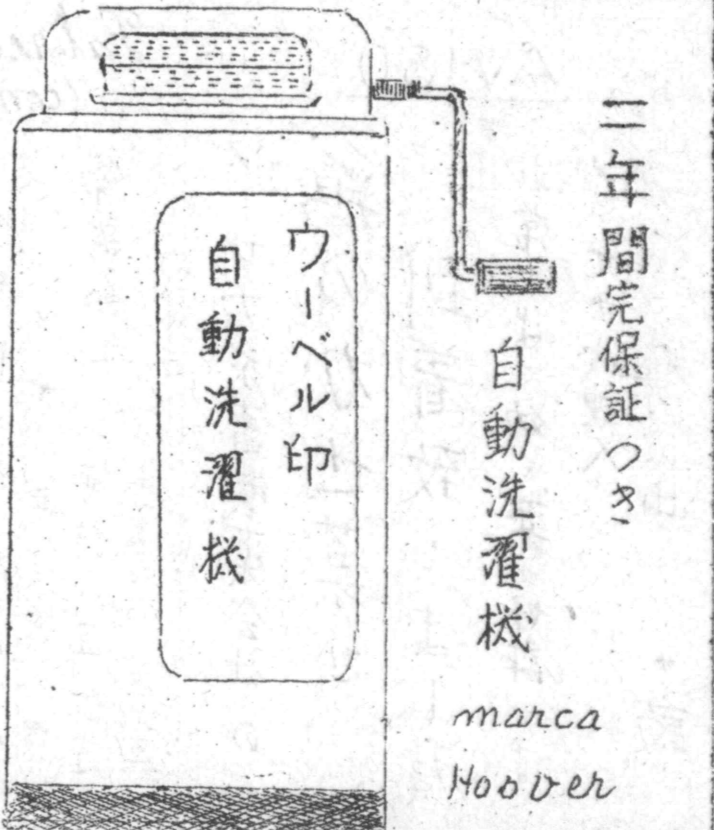 二年間完保証つき
自動洗濯機
marca
Hoover
ウーベル印
自動洗濯機